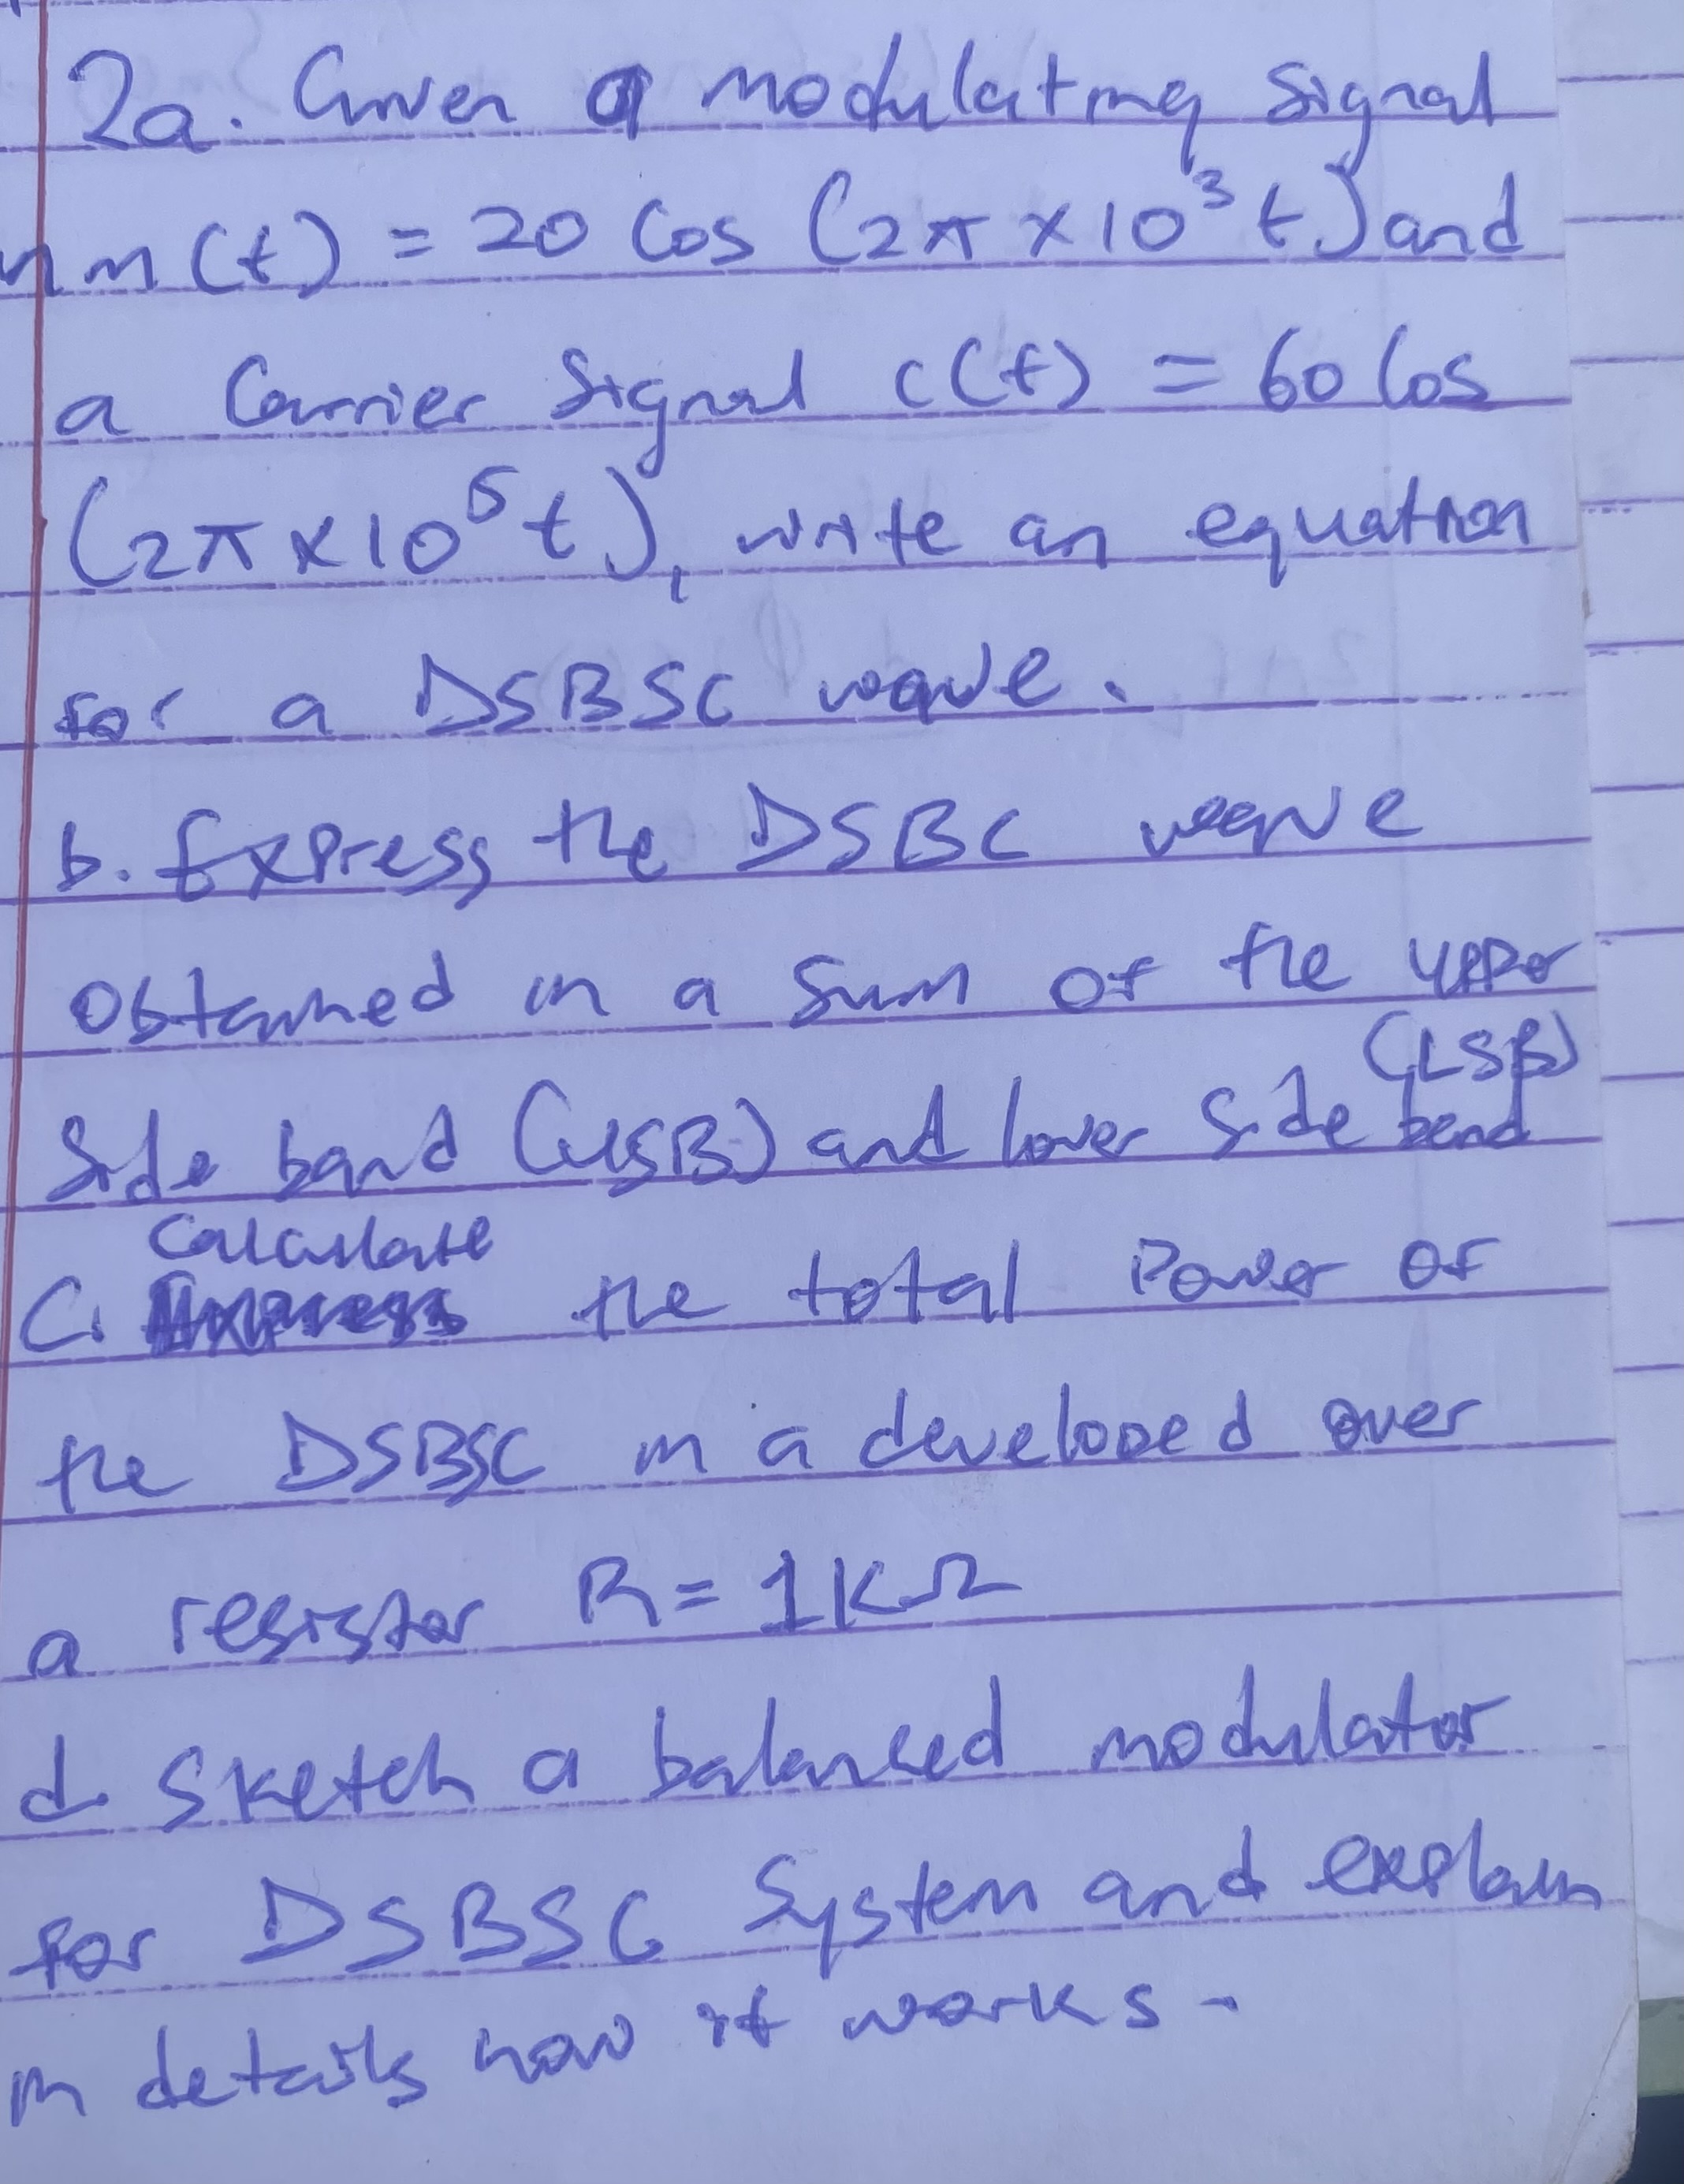 2a. Given a modulating signal
m(t) = 20 Cos (2π x 10³ t) and
a Carrier Signal c(t) = 60 Cos
(2π x 10⁵ t), write an equation
for a DSBSC wave.
b. Express the DSBC wave
obtained in a sum of the upper
(LSB)
Side band (USB) and lower Side band
Calculate
C. Express the total Power of
the DSBSC in a developed over
a resistor R = 1KΩ
d. Sketch a balanced modulator
for DSBSC System and explain
in details how it works.